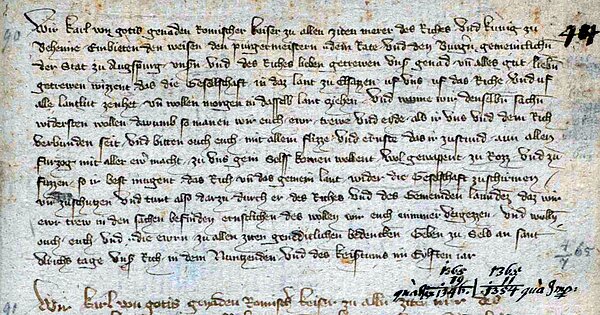 90
Wir karl von gotis genaden Romischer keiser zu allen ziten merer des Riches vnd kunig zu
Beheim Embieten den weisen den purgermeistern dem Rate vnd den Burgern gemeinlichen
der Stat zu Augspurg vnsern vnd des Riches lieben getrewen vnser genad vnd alles gut lieben
getrewen wizzent daz die Geselschaft in daz lant zu Elsazzen vf vns vf daz Riche vnd vf
alle lantlut zeuhet vnd wollen morgen in dasselb lant cziehen vnd wanne wir denselben sachen
widersten wollen darumb so manen wir euch ewr trewe vnd eyde als ir vns vnd dem Rich
verbunden seit vnd bitten euch auch mit allem flizze vnd ernste das ir zustund an allen
furzog mit aller ewr macht zu vns gein Sels komen wellent wol gewapent zu Rozz vnd zu
fuzzen so ir best mugent das Rich vnd das gemein lant wider die Geselschaft zuschirmen
vnd zuschuczen vnd tunt also darzu durch er des Riches vnd des Gemeinden landes daz wir
ewr trew in den sachen befinden ernstlichen des wollen wir euch nimmer vergezzen vnd wollen
euch vnd die ewrn zu allen ziten genediclichen bedencken Geben zu Sels an sant
Vlrichs tage vnser Rich in dem Nuntzenden vnd des keisertums im Eylften iar
1365
19
1346
1365
11
1354
4/7 65
91
Wir karl von gotis genaden Romisch keiser zu allen ziten merer des